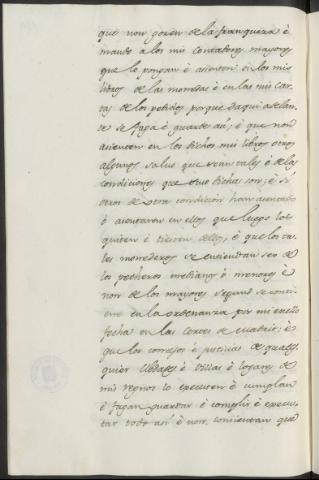 que non gozen de la franqueza è
mando a los mis contadores mayores
que lo pongan è asienten en los mis
libros de las monedas è en las mis car-
tas de los pedidos porque daqui adelan-
te se faga è guarde asi; è que non
asienten en los dichos mis libros otros
algunos salvo que sean tales è de las
condiciones que suso dichas son; è si
otros de otra condicion han asentado
è asentaren en ellos que luego los
quiten è tiesten dellos, è que los ta-
les monederos se entiendan ser de
los pecheros medianos è menores è
non de los mayores segund se contie-
ne en la ordenanza por mi
fecha en las Cortes de Madrid; è
que los consejos è justicias de quales-
quier Cibdades è Villas è Logares de
mis regnos lo executen è cumplan
è fagan guardar è complir è execu-
tar todo asi è non consientan que